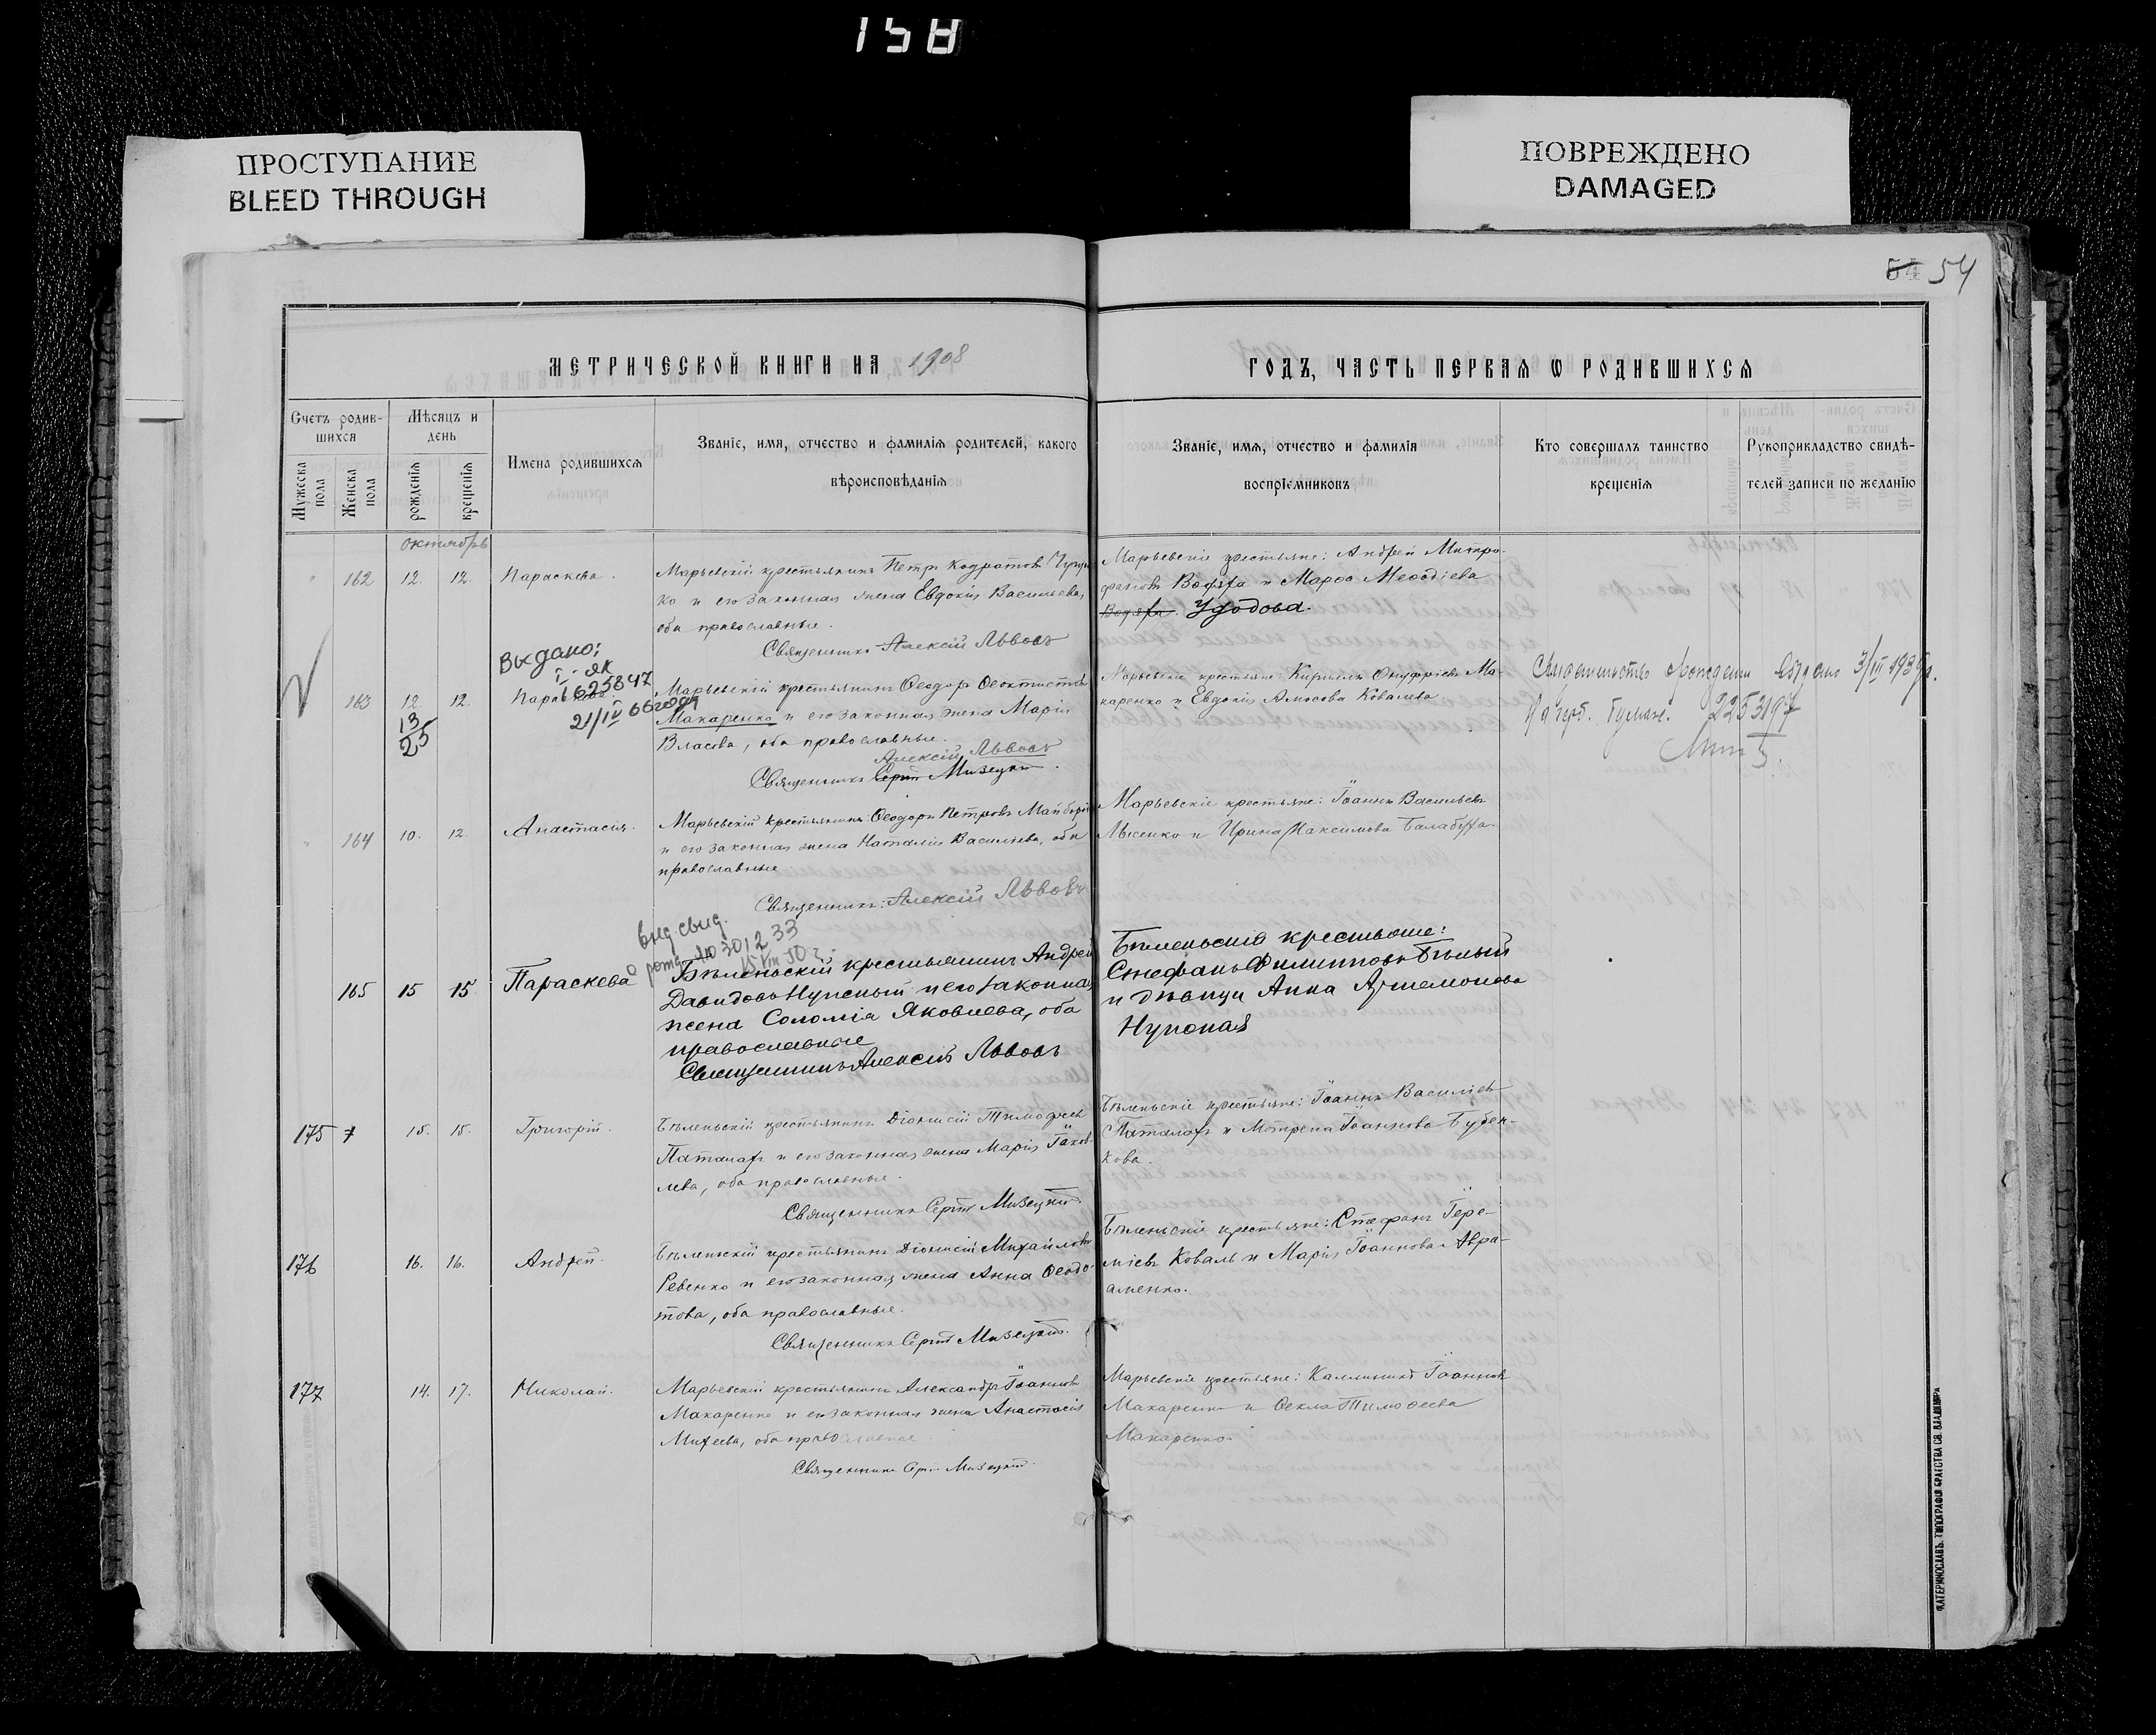 158
ПРОСТУПАНИЕ
BLEED THROUGH
ПОВРЕЖДЕНО
DAMAGED
54 54
МЕТРИЧЕСКОЙ КНИГИ НА 1908
ГОДЪ, ЧАСТЬ ПЕРВАЯ Ѡ РОДИВШИХСЯ
Счетъ родив-
шихся
Мужеска
пола
Женска
пола
Мѣсяцъ и
день
рожденія
крещенія
Имена родившихся
Званіе, имя, отчество и фамилія родителей, какого
вѣроисповѣданія
Званіе, имя, отчество и фамилія
воспріемниковъ
Кто совершалъ таинство
крещенія
Рукоприкладство свидѣ-
телей записи по желанію
октябрь
162 12. 12. Параскева.
Марьевскій крестьянинъ Петръ Кодратовъ
ко и его законная жена Евдокія Васильева,
оба православные.
Священникъ Алексій Львовъ
Марьевскіе крестьяне: Андрей Митро-
фановъ Водяха и Марѳа Меѳодіева
Водяха. Удодова.
Выдано:
I-ЯК
1625847
21/IV 66 года
163 12. 12.
13
25
Марьевскій крестьянинъ Ѳеодоръ Ѳеоктистовъ
Макаренко и его законная жена Марія
Власова, оба православные.
Алексій Львовъ
Священникъ Сергій Мизецкій.
Марьевскіе крестьяне: Кириллъ Онуфріевъ Ма-
каренко и Евдокія Амосова Ковалева.
Свидетельство о рождении выдано 3/III 1939г.
На герб. бумаге. 2253197
164 10. 12. Анастасія.
Марьевскій крестьянинъ Ѳеодоръ Петровъ
и его законная жена Наталія Васильева, оба
православные
Священникъ: Алексій Львовъ
Марьевскіе крестьяне: Іоаннъ Васильевъ
Лысенко и Ирина Максимова Балабуха.
выд. свид.
о рожд. 301233
15 VIII 50 г.
165 15 15 Параскева
Бѣленьскій крестьянинъ Андрей
Давидовъ Нупеный и его законная
жена Соломія Яковлева, оба
православные
Священникъ Алексій Львовъ
Бѣленьскіе крестьяне:
Стефанъ Филипповъ Бѣлый
и дѣвица Анна Артемонова
175 15. 15. Григорій.
Бѣленьскій крестьянинъ Діонисій Тимофеев
Паталахъ и его законная жена Марія Іаков-
лева, оба православные.
Священникъ Сергій Мизецкій.
Бѣленьскіе крестьяне: Іоаннъ Василіев
Паталахъ и Мотрена Іоаннова Бубен-
кова.
176 16. 16. Андрей.
Бѣленьскій крестьянинъ Діонисій Михайловъ
Ревенко и его законная жена Анна Ѳеодо-
това, оба православные.
Священникъ Сергій Мизецкій.
Бѣленьскіе крестьяне: Стефанъ Іере-
міевъ Коваль и Марія Іоаннова Авра-
аменко.
177 14. 17. Николай.
Марьевскій крестьянинъ Александръ Іоанновъ
Макаренко и его законная жена Анастасія
Михеева, оба православные
Священникъ Сергій Мизецкій.
Марьевскіе крестьяне: Каллиникъ Іоанновъ
Макаренко и Ѳекла Тимоѳеева
Макаренко.
ЕКАТЕРИНОСЛАВЪ. ТИПОГРАФІЯ БРАТСТВА СВ. ВЛАДИМІРА